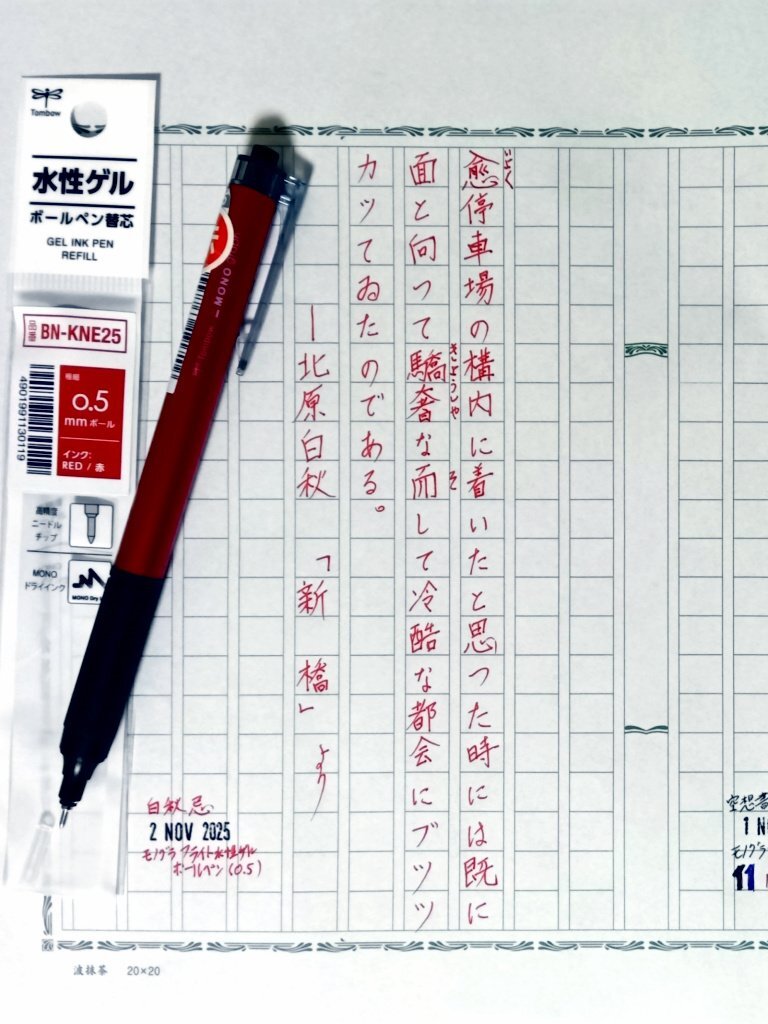 Tombow
水性ゲル
ボールペン替芯
GEL INK PEN
REFILL
品番 BN-KNE25
極細
0.5
mm ボール
インク:
RED / 赤
4901991130119
高精度
ニードル
チップ
MONO
ドライインク
MONO Dry
MONO
愈停車場の構内に着いたと思つた時には既に
いよ〱
面と向つて驕奢な而して冷酷な都会にブツツ
きょうしゃ
そ
カツてゐたのである。
―北原白秋 「新橋」より
白秋忌
2 NOV 2025
モノグラフライト水性ゲル
ボールペン(0.5)
空想
1 N
モノグラ
11
波抹茶 20×20